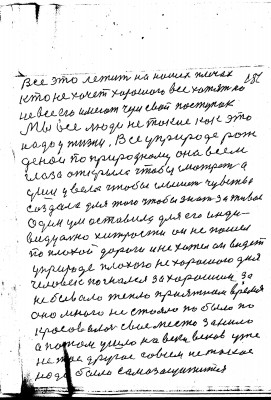 Все это лежит на наших плечах
кто не хочет хорошего все хотят но
не все его имеют чрез свой поступок
Мы все люди не такие как это
надо у жизни. Все у природе рож
дено по природному она всем
глаза открыла чтобы смотрел а
уши увела чтобы слышал чувство
создала для того чтобы знать за живое
Один ум оставила для его инди-
видуально хитрости он не пошел
по плохой дороге и не хотел он видеть
у природе плохого не хорошего дня
Человек погнался за хорошим за
небывало тепло приятным время
оно много не стояло по было по
красовалось свое место заняло
а потом ушло на веки веков уже
не то другое совсем не такое
надо было самозащитится